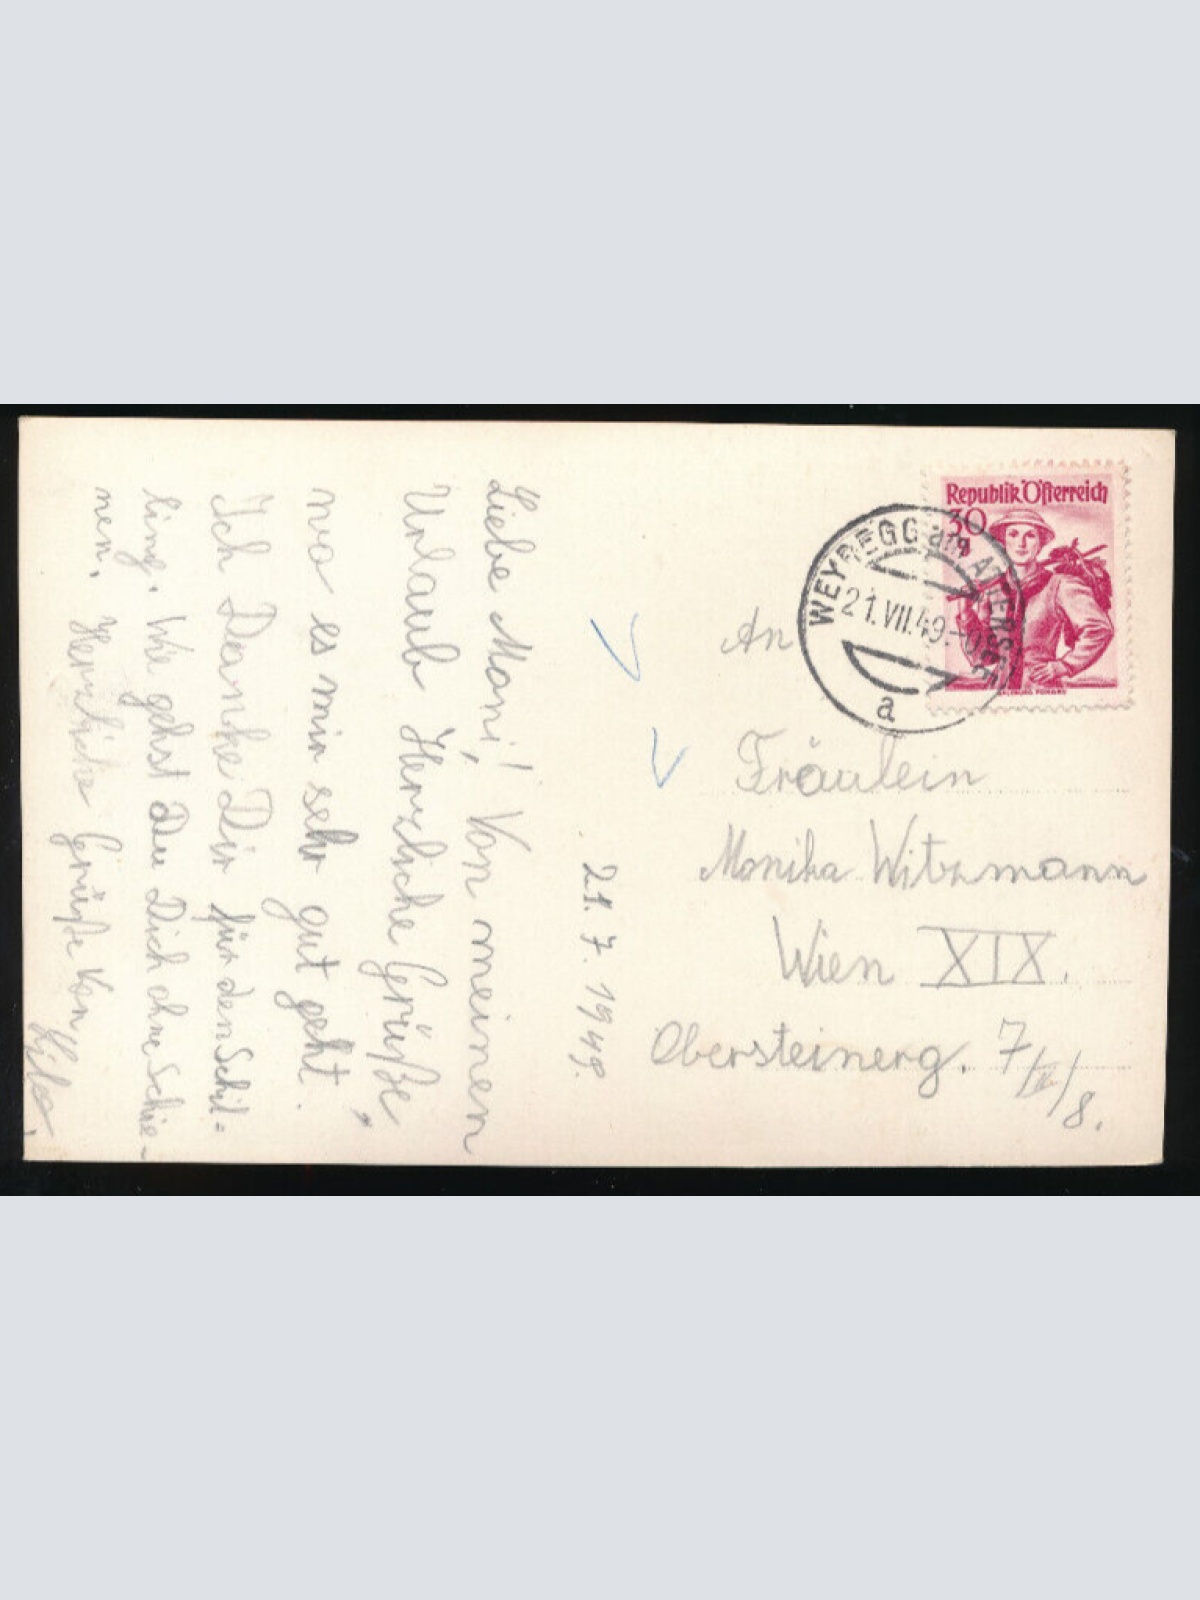 21. 7. 1949.
Liebe Moni! Von meinen
Urlaub Herzliche Grüße,
wo es mir sehr gut geht.
Ich Danke Dir für den Schil-
ling. Wie gehst Du Dich ohne Schie-
nen. Herzliche Grüße von
Republik Österreich
30
WEYREGG am ATTERSEE
21.VII.49.-0
a
An
Fräulein
Monika Witzmann
Wien XIX.
Obersteinerg. 7/II/8.